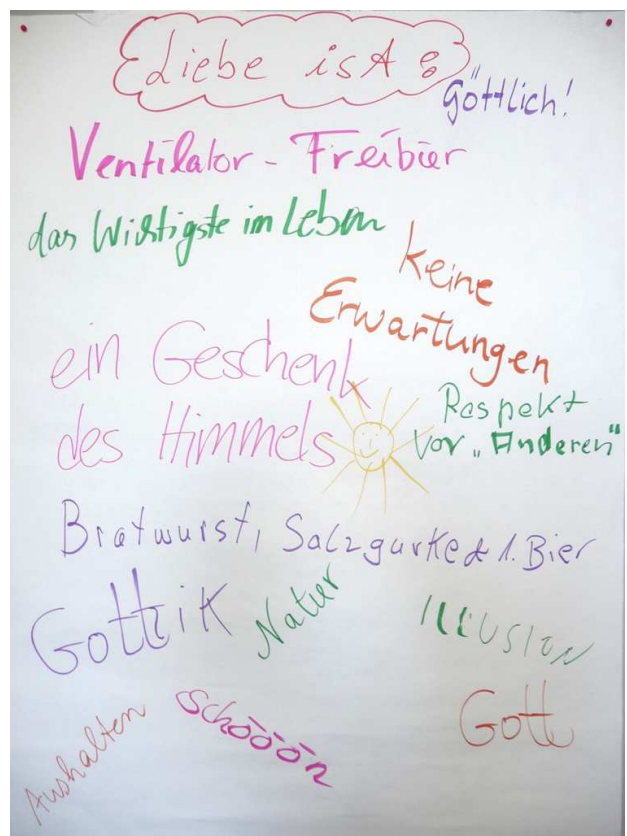 Liebe ist:
göttlich!
Ventilator - Freibier
das Wichtigste im Leben
keine
Erwartungen
ein Geschenk
des Himmels
Respekt
vor „Anderen"
Bratwurst, Salzgurke & 1. Bier
Natur
ILLUSION
schöööön
Gott
Aushalten